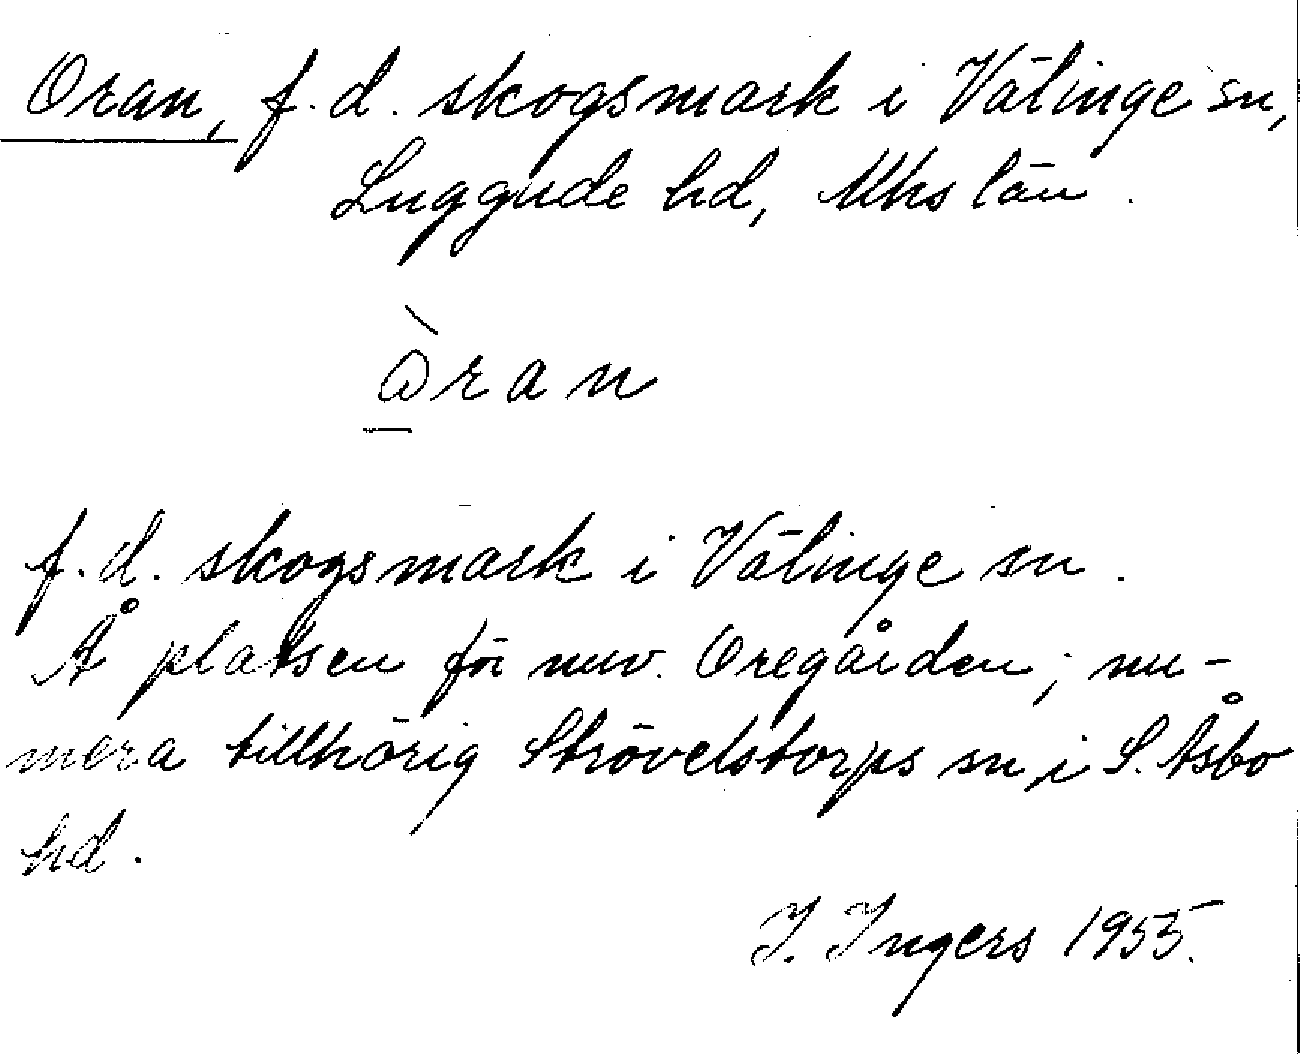 Oran, f.d. skogsmark i Välinge sn,
Luggude hd, Mhs län.
òran
f.d. skogsmark i Välinge sn.
Å platsen för nuv. Oregården; nu-
mera tillhörig Strövelstorps sn, i S. Åsbo
hd.
I. Ingers 1955.